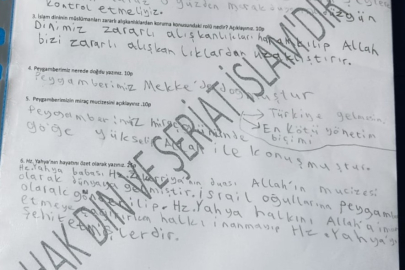 kontrol etmeliyiz.
3. İslam dininin müslümanları zararlı alışkanlıklardan koruma konusundaki rolü nedir? Açıklayınız. 10p
Dinimiz zararlı alışkanlıkları haram kılıp Allah
bizi zararlı alışkanlıklardan uzaklaştırır.
4. Peygamberimiz nerede doğdu yazınız. 10p
Peygamberimiz Mekke'de doğmuştur
5. Peygamberimizin miraç mucizesini açıklayınız. 10p
Türkiye gelmesin.
En kötü yönetim
biçimi
Peygamberimiz
göğe yükselip Allah ile konuşmuştur.
6. Hz. Yahya'nın hayatını özet olarak yazınız.
Hz. Yahya babası Hz. Zekeriya'nın duası Allah'ın mucizesi
olarak dünyaya gelmiştir. İsrail oğullarına peygamber
olarak gönderilip. Hz. Yahya halkını Allah'a
etmeye halkı inanmayıp Hz. Yahya'yı
şehit etmişlerdir.
HAK DİN NE ŞERİAT İSLAM'DIR